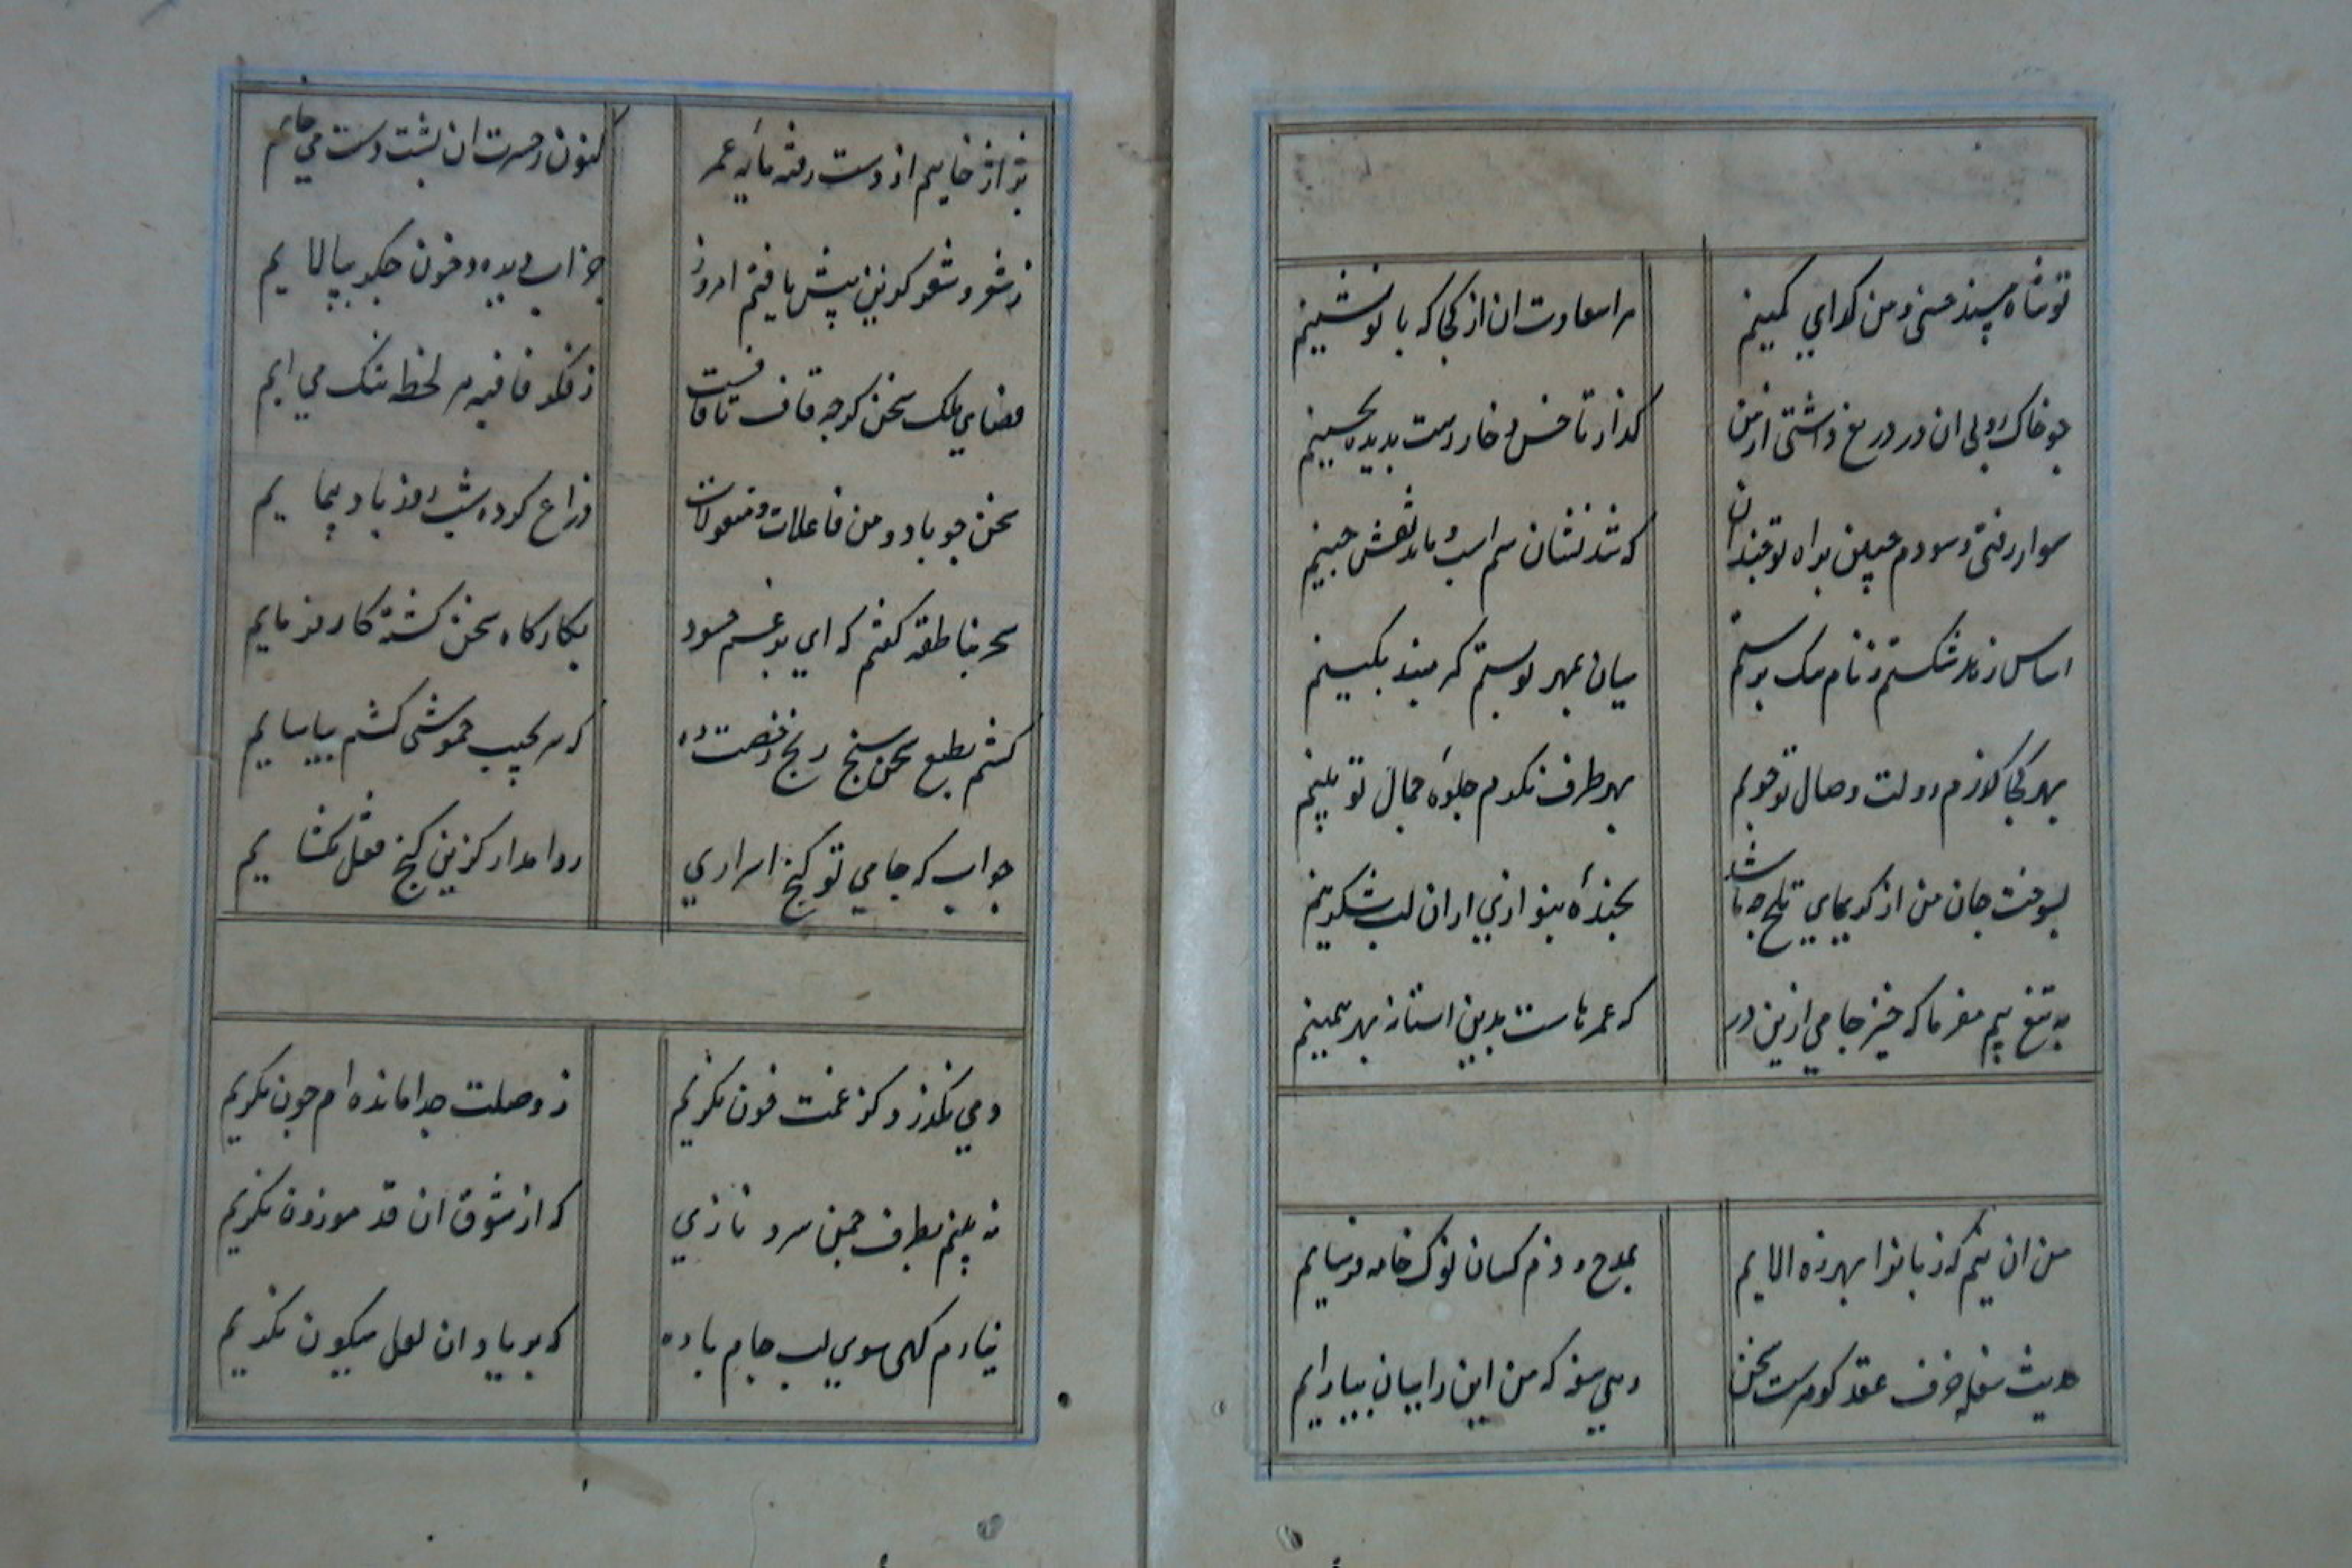 تو شاه مسند حسنی و من کدای کمینم مرا سعادت ان از کجا که با تو نشینم
جو خاک روبی ان در دریغ داشتی از من کذار تا خس و خار رهت بدیده بجینم
سوار رفتی و سودم جبین براه تو جندان که شد نشان سم اسب تو نقش جبینم
اساس زهد شکستم ز نام ننک برستم میان بمهر تو بستم کمر مبند بکینم
بهر کجا کذرم دولت وصال تو جویم بهر طرف نکرم جلوهٔ جمال تو بینم
بسوخت جان من از کریهای تلخ جه باشد بخندهٔ بنوازی ازان لب شکرینم
به تیغ بیم مفرما که خیز جامی ازین در که عمرهاست بدین استانه بهر همینم
من ان نیم که زبانرا بهرزه الایم بمدح و ذم کسان نوک خامه فرسایم
حدیث سفله خزف عقد کوهرست سخن زهی سفه که من این را بیان بیارایم
بژاژ خاییم از دست رفته مایه عمر کنون ز حسرت ان پشت دست می خایم
ز شعر و شعر کزین پیش یافتم امروز جز اب دیده و خون جکر نپالایم
فضای ملک سخن کرجه قاف تا قافست ز فکر قافیه هر لحظه تنک می ایم
سخن جو باد و من فاعلات و مفعولات ذراع کرده شب و روز باد پیمایم
سحر بناطقه کفتم که ای برغم حسود بکارکاه سخن کشته کارفرمایم
کشم بطبع سخن سنج رنج رخصت ده که سر بجیب خموشی کشم بیاسایم
جواب که جامی تو کنج اسراری روا مدار کزین کنج قفل بکشایم
دمی نکذرد کز غمت خون نکریم ز وصلت جدا مانده ام جون نکریم
نه بینم بطرف جمن سرو نازی که از شوق ان قد موزون نکریم
نیارم کهی سوی لب جام باده که بر یاد ان لعل میکون نکریم